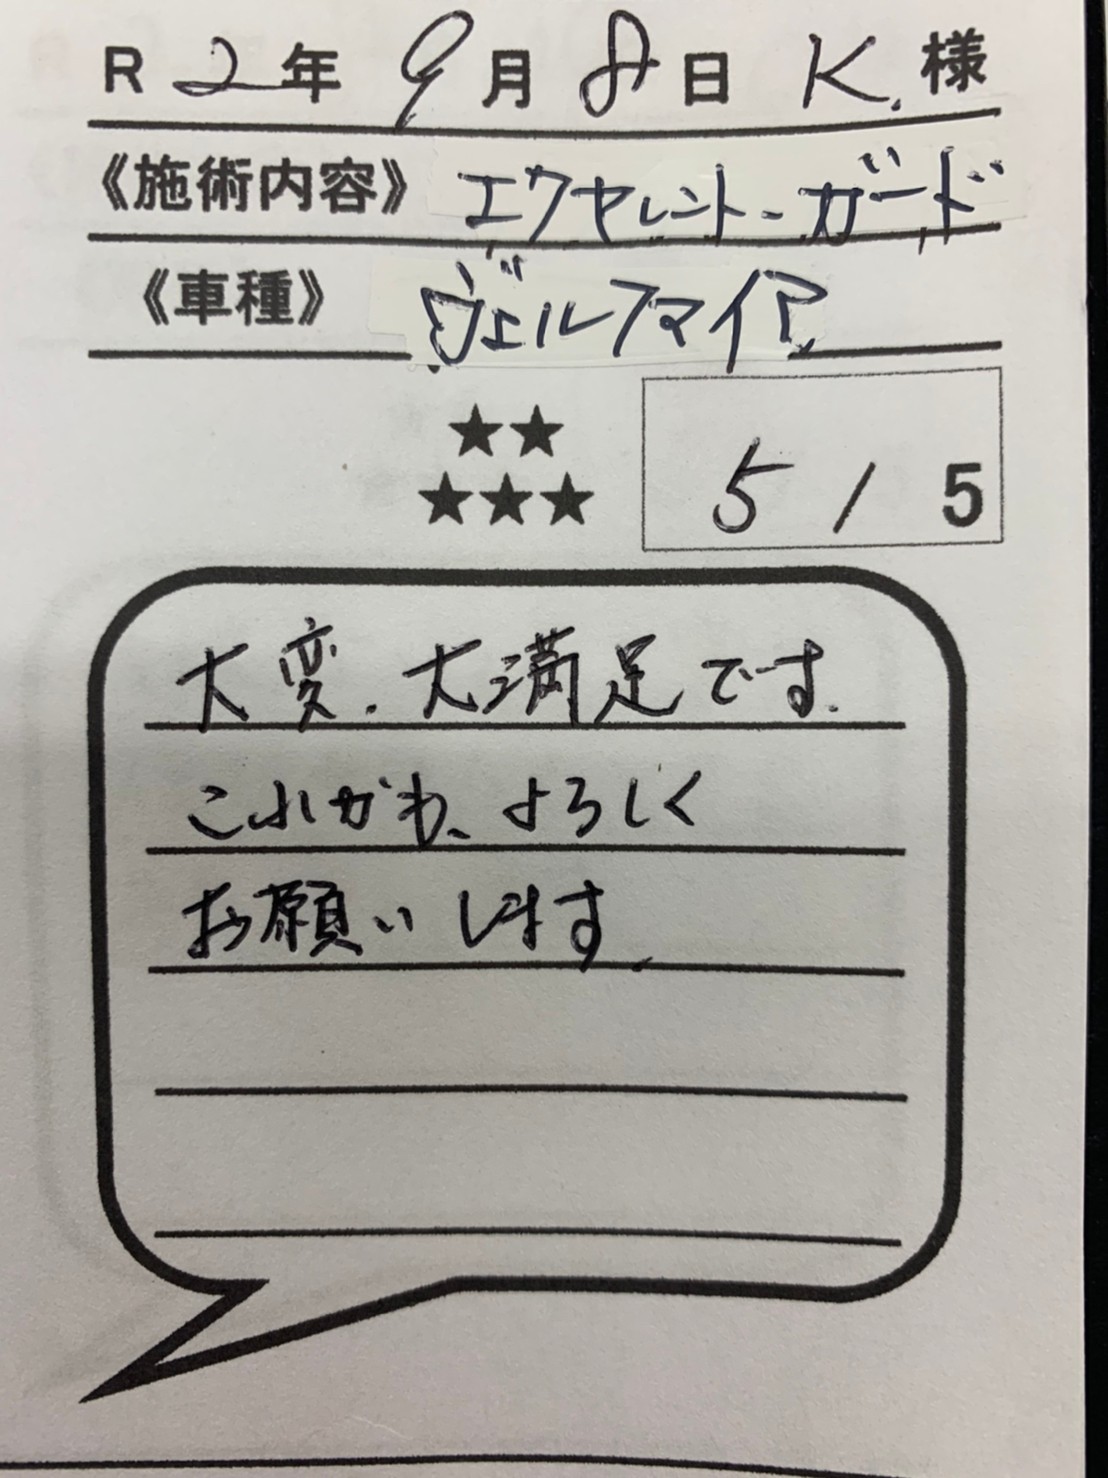 R 2年 9月 8日 K. 様
《施術内容》 エクセレント-ガード
《車種》 ヴェルファイア
★★
★★★
5 / 5
大変.大満足です.
これからも、よろしく
お願いします.